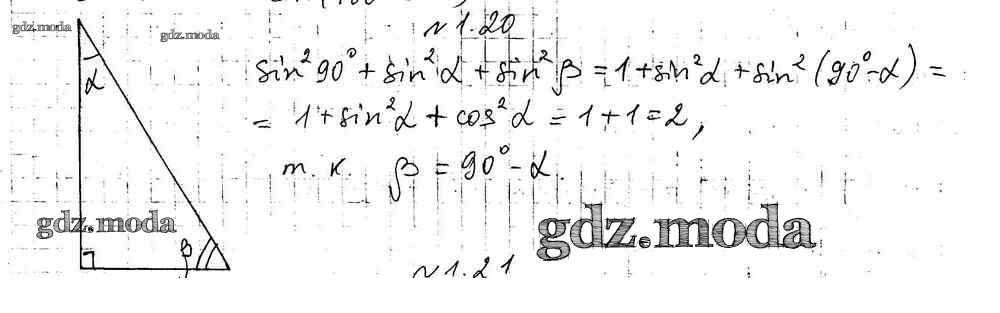 № 1.20
gdz.moda
gdz.moda
α
sin² 90° + sin² α + sin² β = 1 + sin² α + sin² (90° - α) =
= 1 + sin² α + cos² α = 1 + 1 = 2,
т. к. β = 90° - α.
gdz.moda
gdz.moda
β
№ 1.21